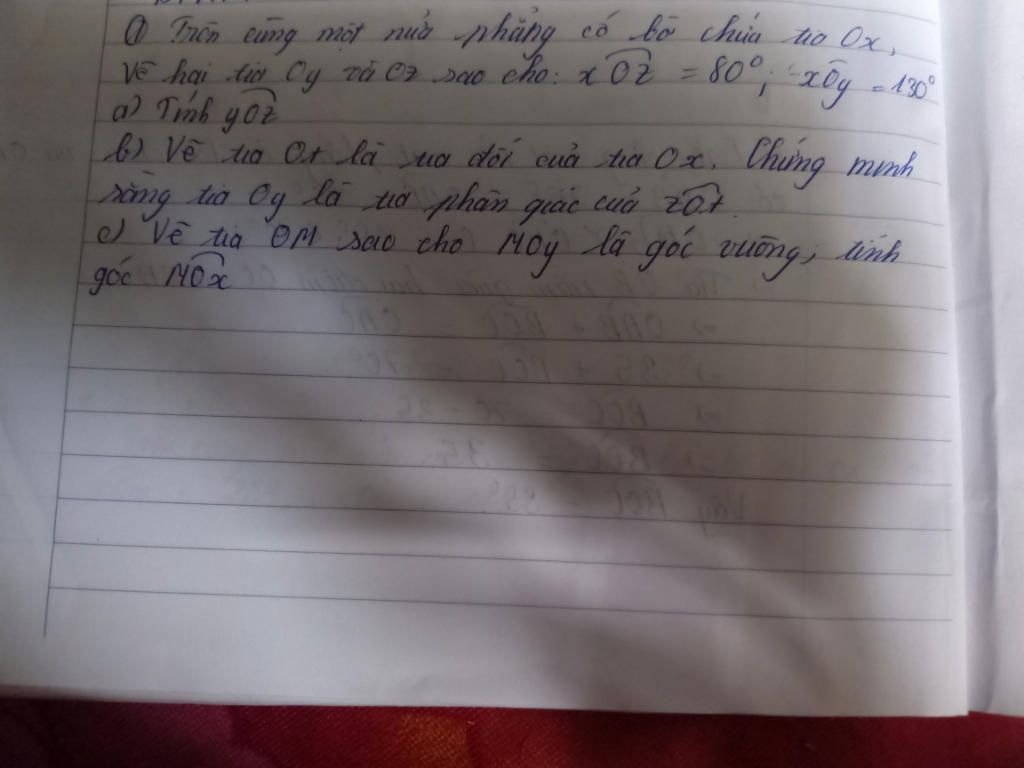 ① Trên cùng một nửa phẳng có bờ chứa tia Ox,
Vẽ hai tia Oy và Oz sao cho: xOz = 80°; xOy = 130°
a) Tính yOz
b) Vẽ tia Ot là tia đối của tia Ox. Chứng minh
rằng tia Oy là tia phân giác của zOt.
c) Vẽ tia OM sao cho MOy là góc vuông, tính
góc MOx